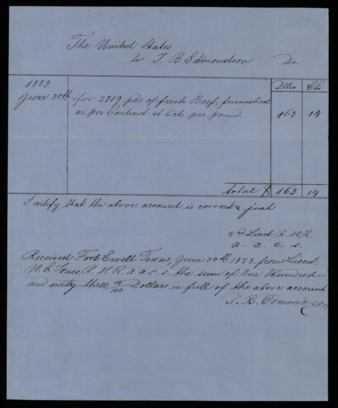 The United States
to T. B. Edmondson Dr.
Dlls Cts
1853
June 30th for 2719 pds of fresh Beef, furnished
as per Contract at 6 cts per pound. 163 14
total $ 163 14
I certify that the above account is correct & just
2d Lieut R. M. R.
a. a. c. s.
Received Fort Ewell Texas, June 30th 1853, from Lieut
W. E. Jones R. M. R. a. a. c. s. the sum of One Hundred
and sixty three 14/100 Dollars in full of the above account
T. B. Edmondson